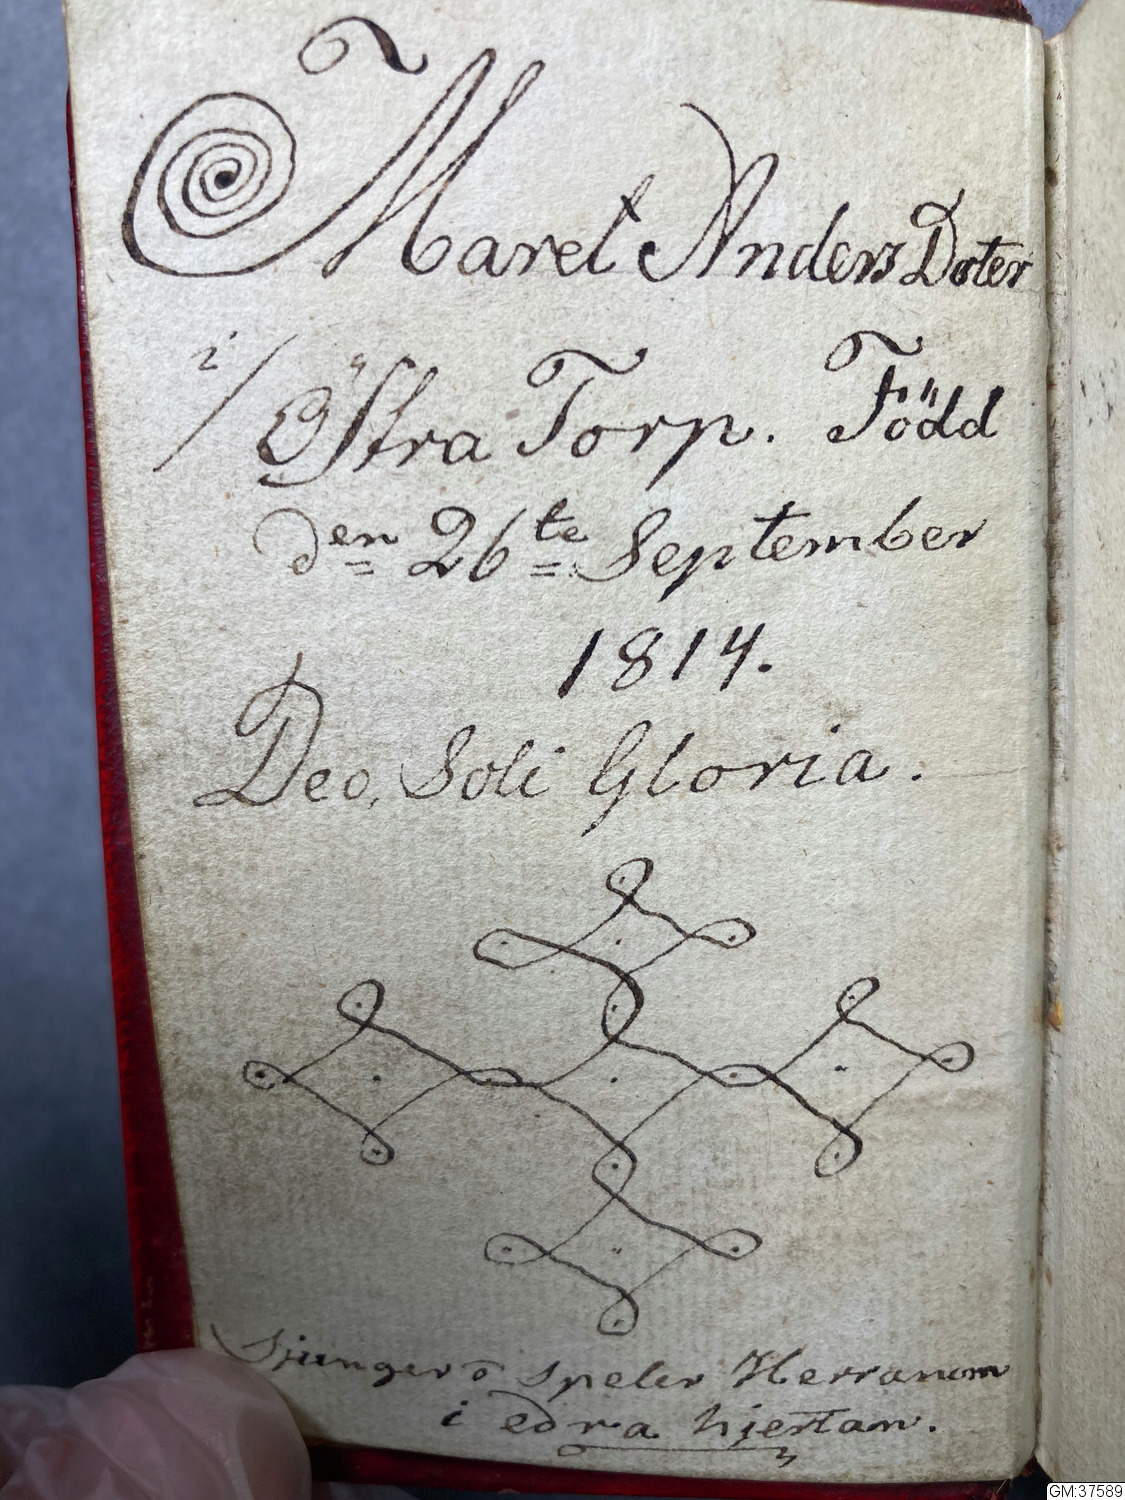 Maret Anders Doter
i/ Östra Torp. Född
den 26te September
1814.
Deo, Soli Gloria.
Sjunger o speler Herranom
i edra hjertan.
GM:37589